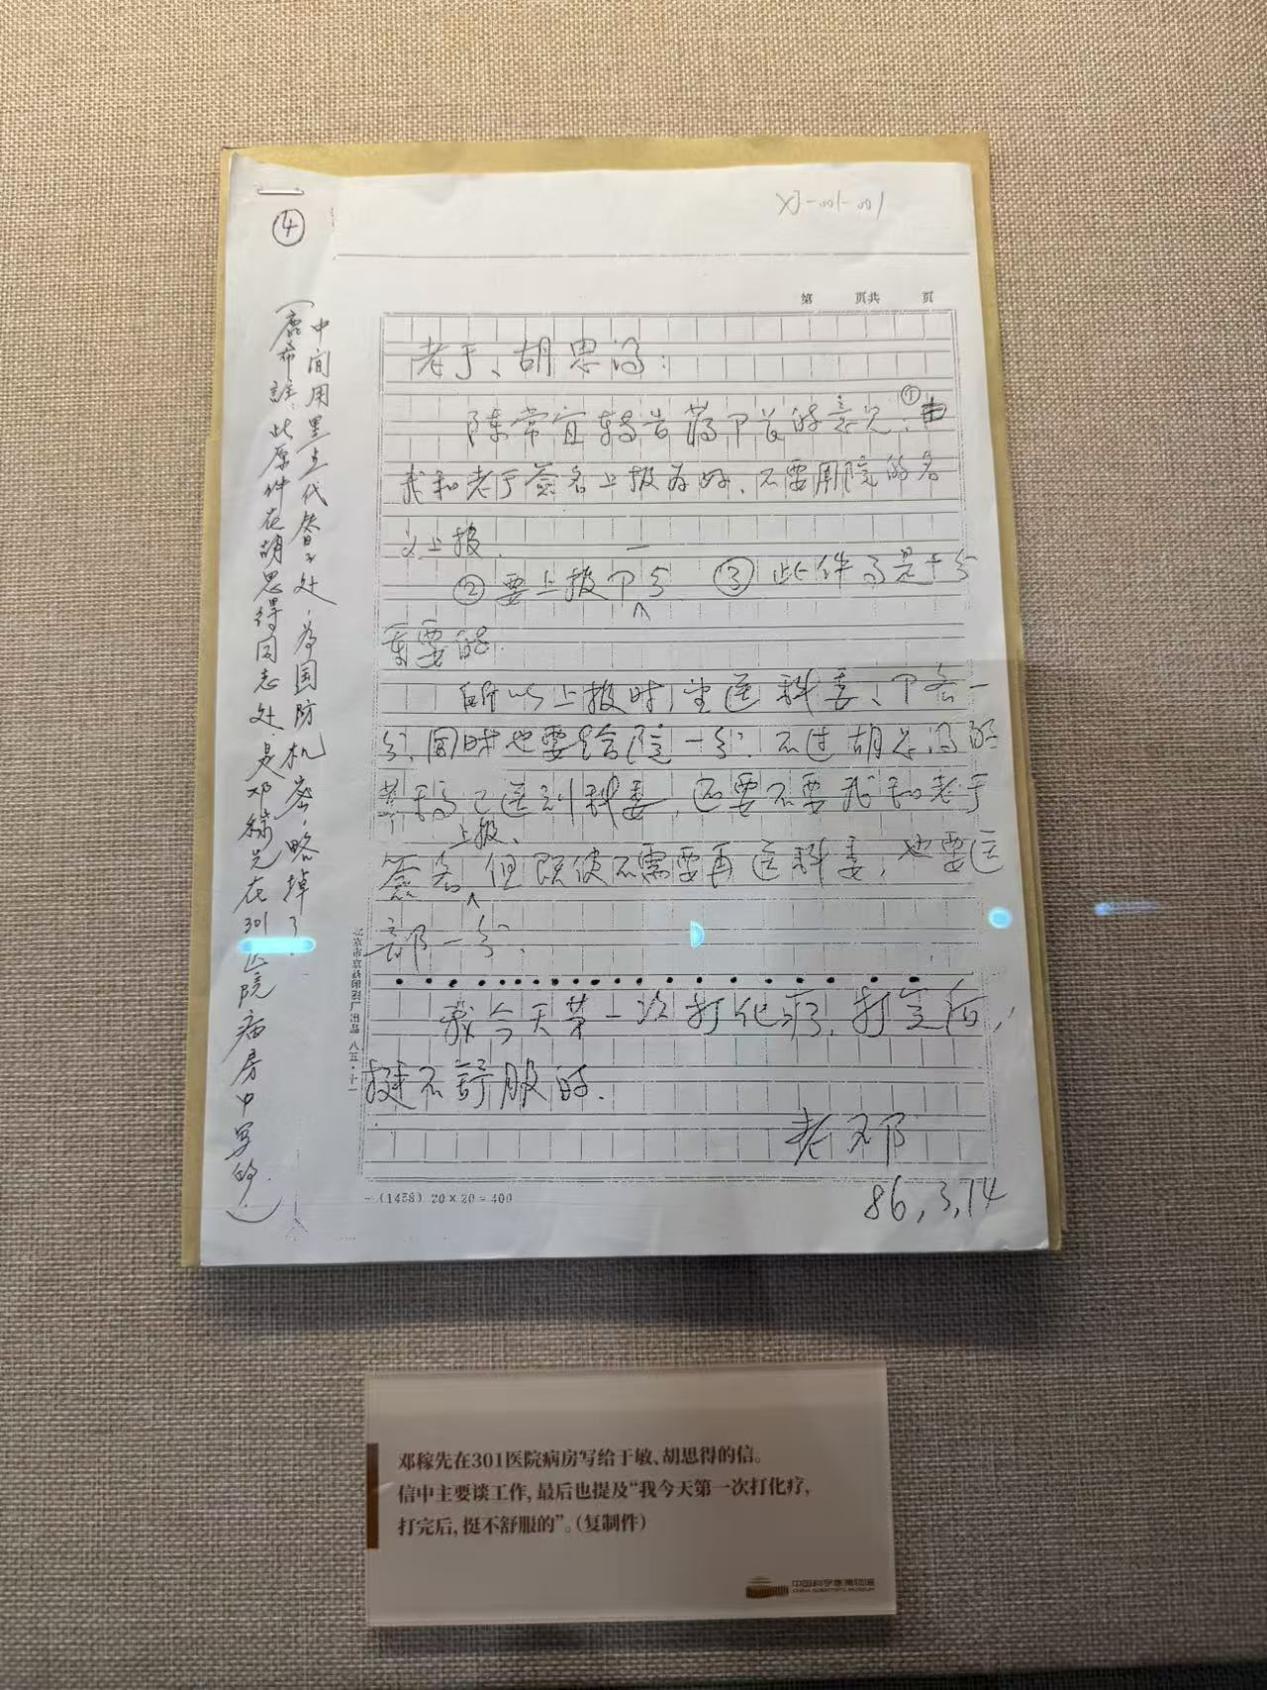 XJ-001-001
④
第 页共 页
老于、胡思得:
陈常宜转告蒋部首的意见:①由
我和老于签名上报为好、不要用院的名
义上报.
②要上报部分 ③此件高是十分
重要的.
所以上报时,坐送科委、部各一
分,同时也要给院一分. 不过胡思得的
草稿已送到科委,还要不要我和老于
上报、
签名,但既使不需要再送科委,也要送
部一分.
我今天第一次打化疗,打完后,
挺不舒服的.
老邓
86.3.14
(1458) 20×20=400
中间用黑点代替了处,为国防机密,略掉了.
(鹿希註:此原件在胡思得同志处,是邓稼先在301医院病房中写的.)
邓稼先在301医院病房写给于敏、胡思得的信。
信中主要谈工作,最后也提及“我今天第一次打化疗,
打完后,挺不舒服的”。(复制件)
中国科学家博物馆
CHINA SCIENTISTS MUSEUM